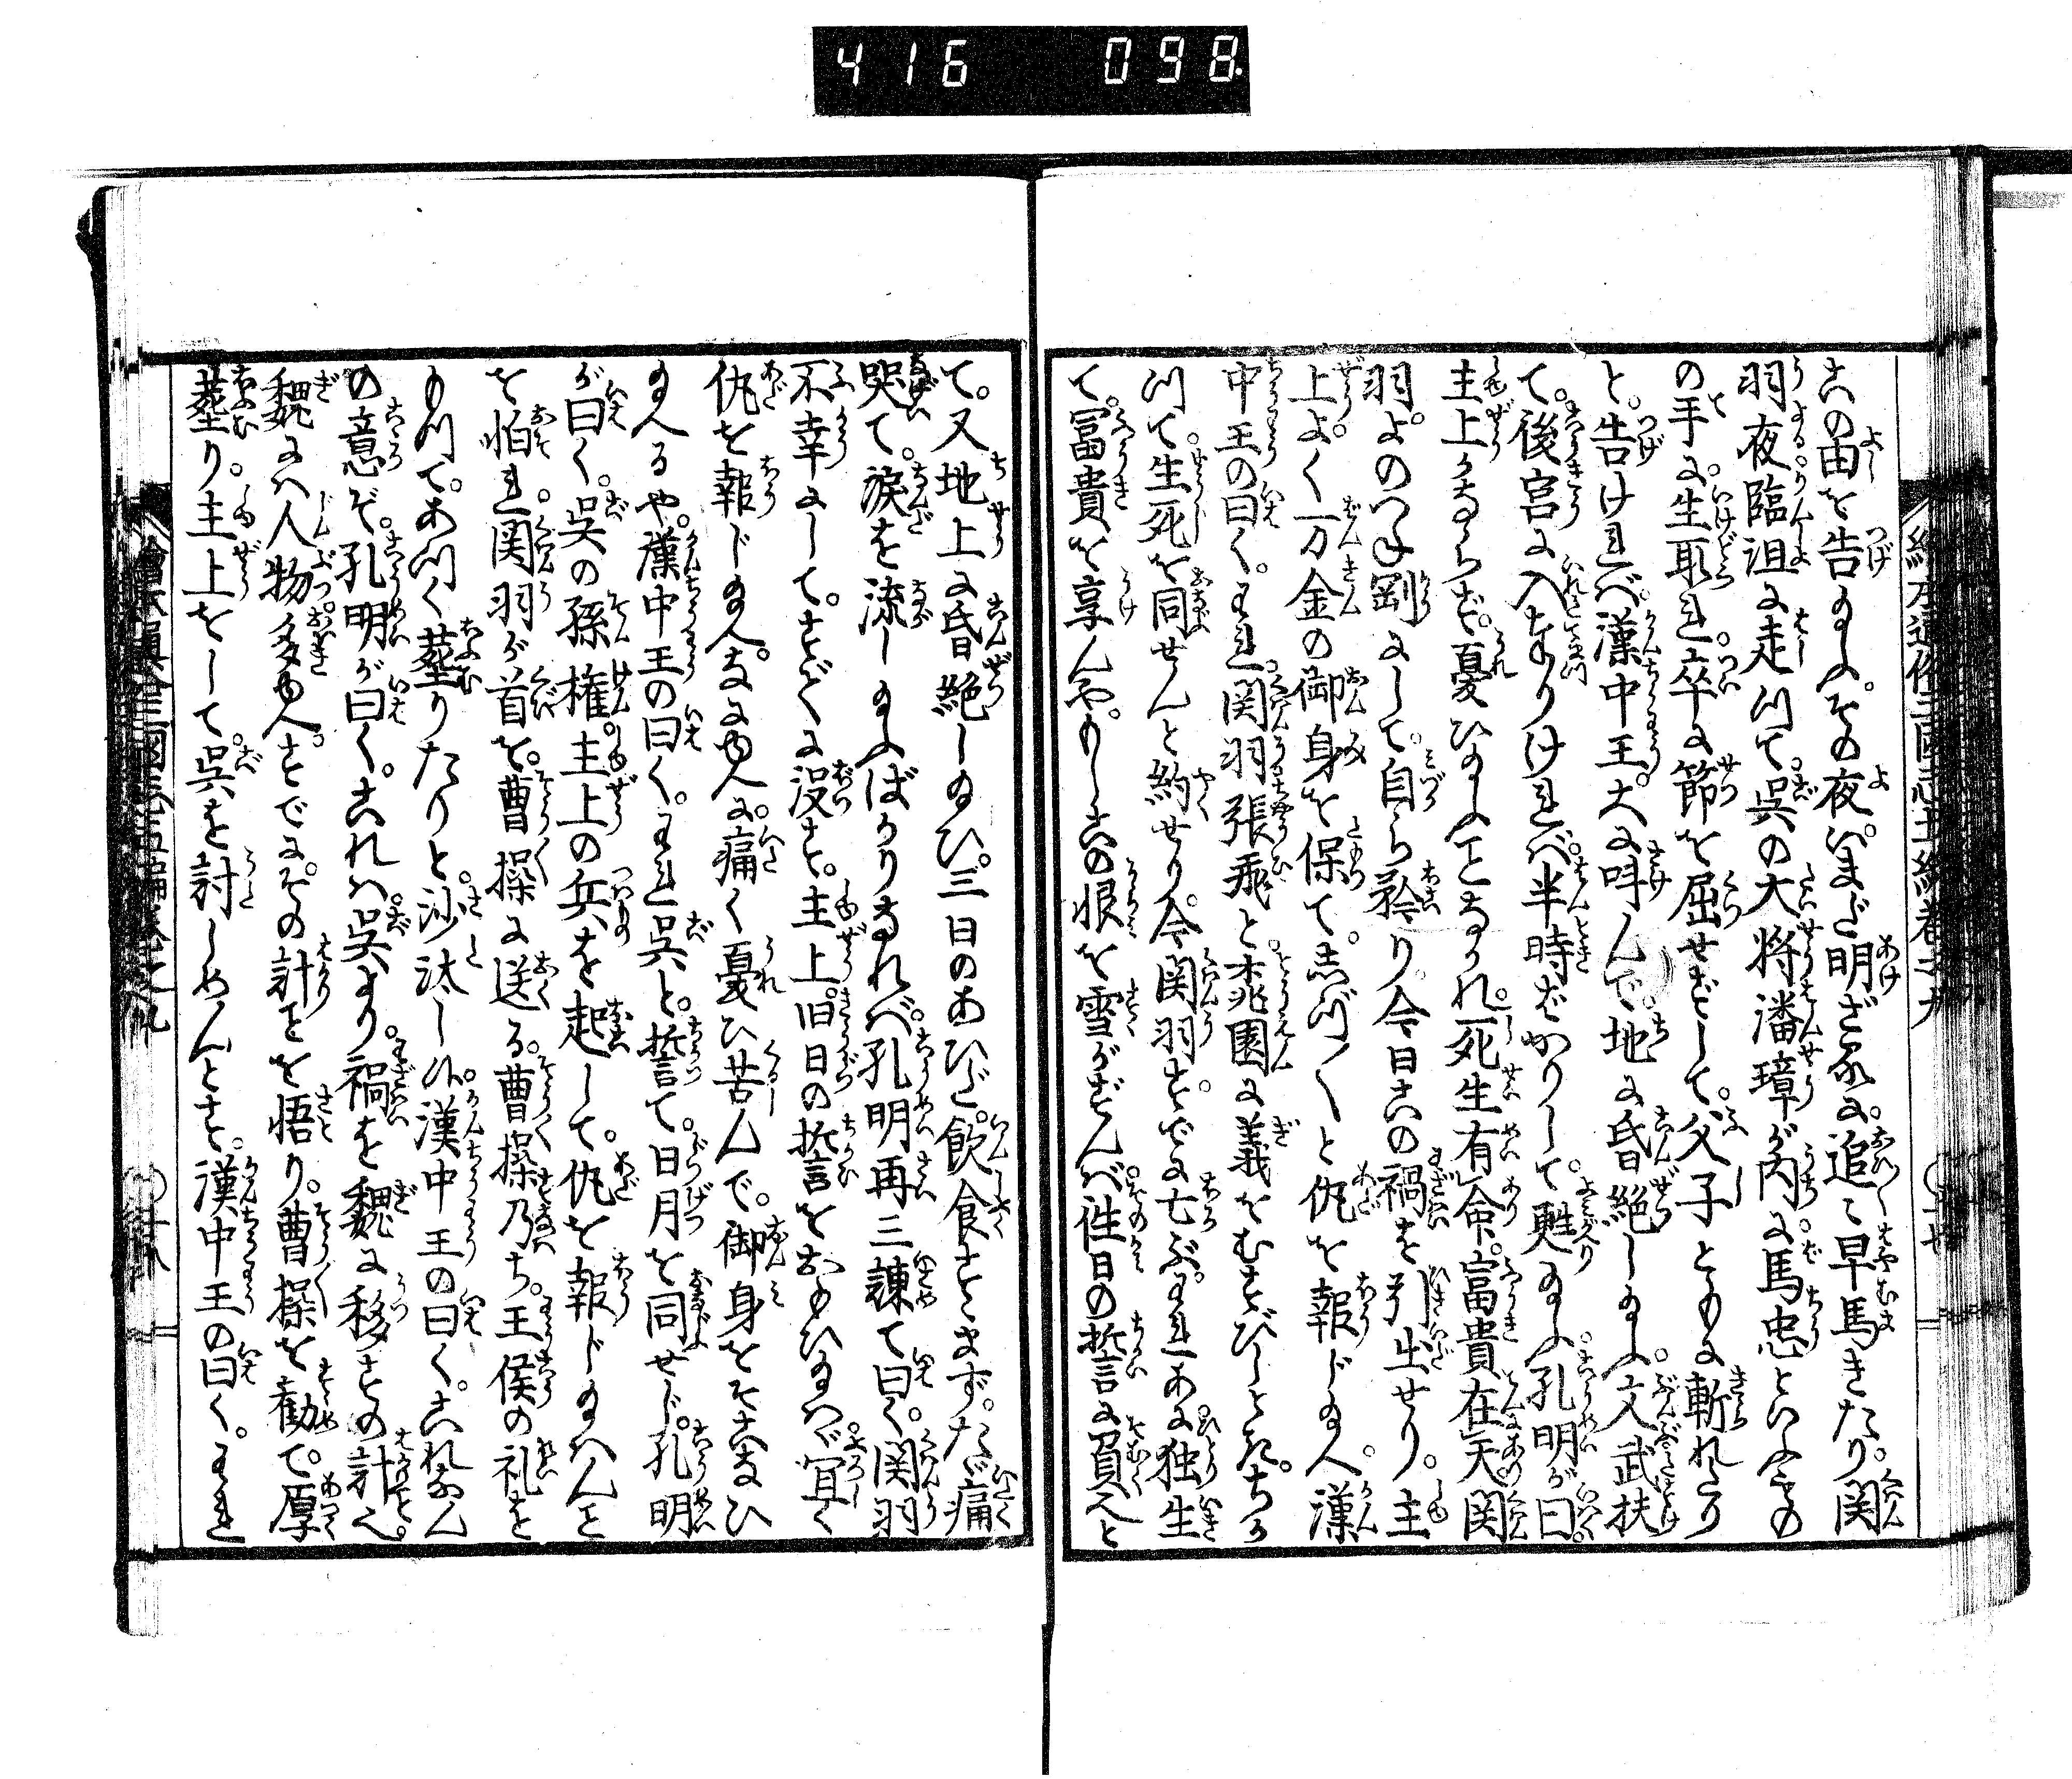 416 098
この由を告給ふ。その夜いまだ明ざるに。追々早馬きたり。関
羽夜臨沮に走つて。呉の大将潘璋が内に。馬忠といふもの
の手に。生取れ。卒に節を屈せずして。父子ともに斬れたり
と。告ければ。漢中王。大に叫んで。地に昏絶し給ふ。文武扶
て。後宮に入奉りければ。半時ばかりして。甦給ふ。孔明が曰
主上かならず。憂ひ給ふことなかれ。死生有命。富貴在天関
羽。よのつね剛にして。自ら矜り。今日この禍を引出せり。主
上よく万金の御身を保て。志づ〱と仇を報じ給へ。漢
中王の曰く。われ関羽張飛と。桃園に義をむすびしとき。ちか
つて生死を同せんと約せり。今関羽。すでに亡ぶ。われあに独生
て。冨貴を享んや。もしこの恨を雪がずんば。往日の誓言に負んと
て。又地上に昏絶し給ひ。三日のあひだ。飲食すゝまず。たゞ痛
哭て。涙を流し給ふばかりなれば。孔明再三諫て曰く。関羽
不幸にして。すでに没す。主上。旧日の誓言をおもひ給はゞ。宜く
仇を報じ給へ。なにゆへに。痛く憂ひ苦んで。御身をそこなひ
給へるや。漢中王の曰く。われ呉と。誓て。日月を同せじ。孔明
が曰く。呉の孫権。主上の兵を起して。仇を報じ給はんこと
を怕れ。関羽が首を。曹操に送る。曹操乃ち。王侯の礼を
もつて。あつく葬りたりと。沙汰し候。漢中王の曰く。これなん
の意ぞ。孔明が曰く。これは呉より。禍を魏に移すの計也。
魏には人物多ゆへ。すでに。その計ことを悟り。曹操を勧て。厚
葬り。主上をして。呉を討しめんとす。漢中王の曰く。われ